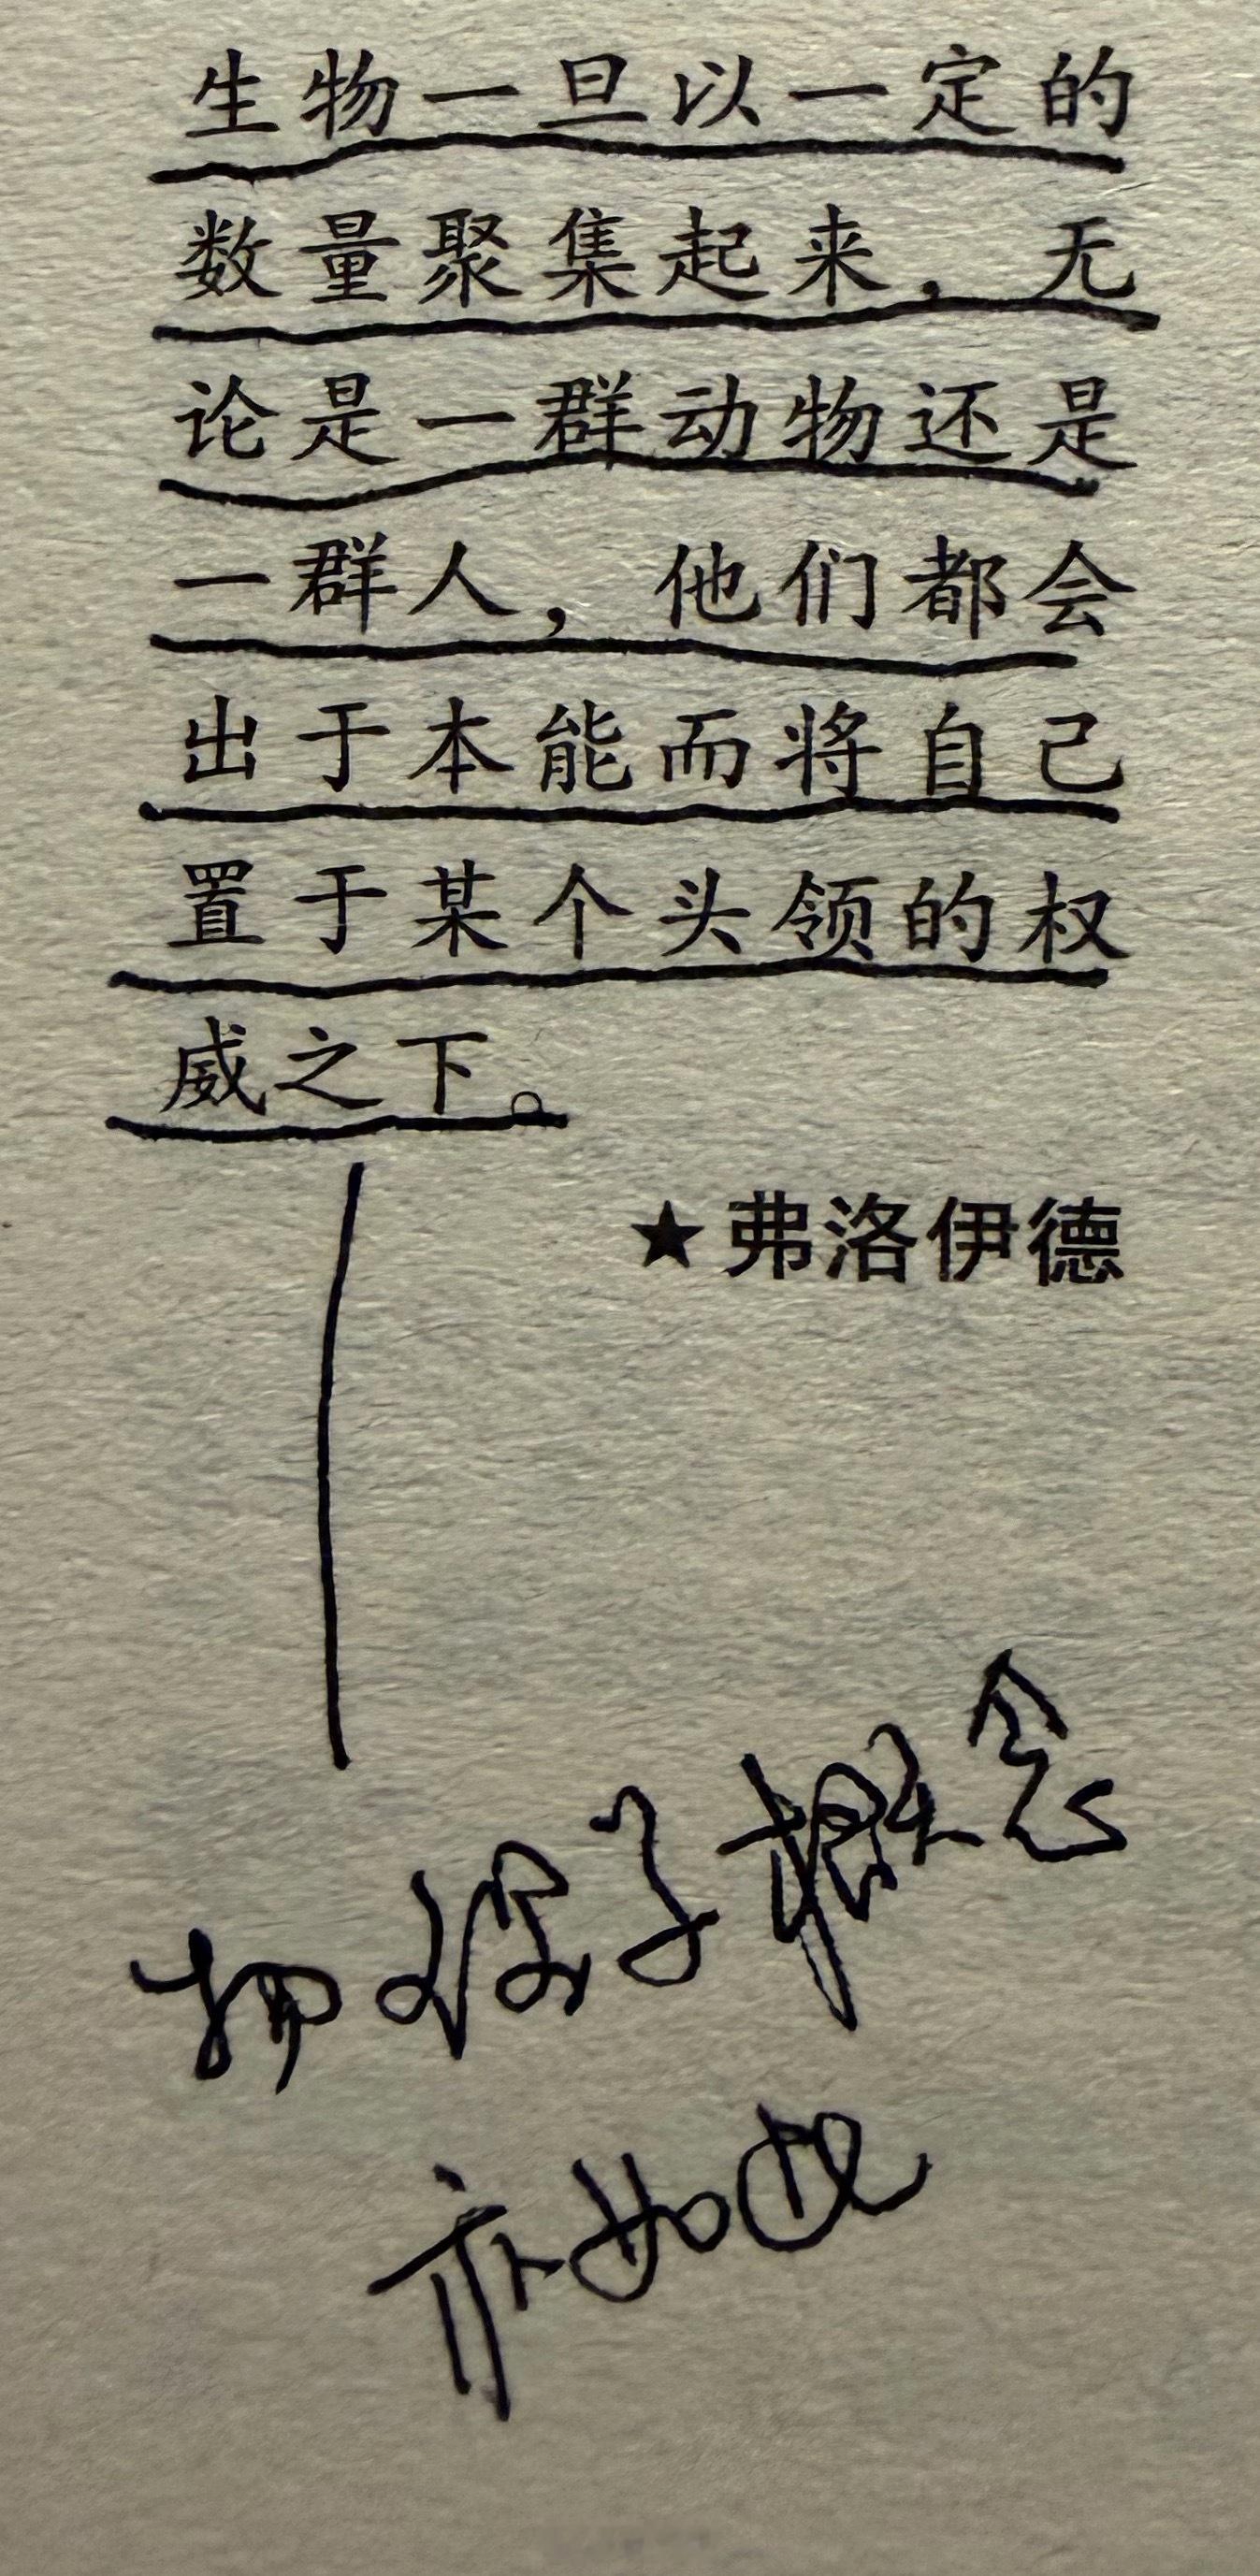 生物一旦以一定的
数量聚集起来，无
论是一群动物还是
一群人，他们都会
出于本能而将自己
置于某个头领的权
威之下。
★弗洛伊德
亦如此